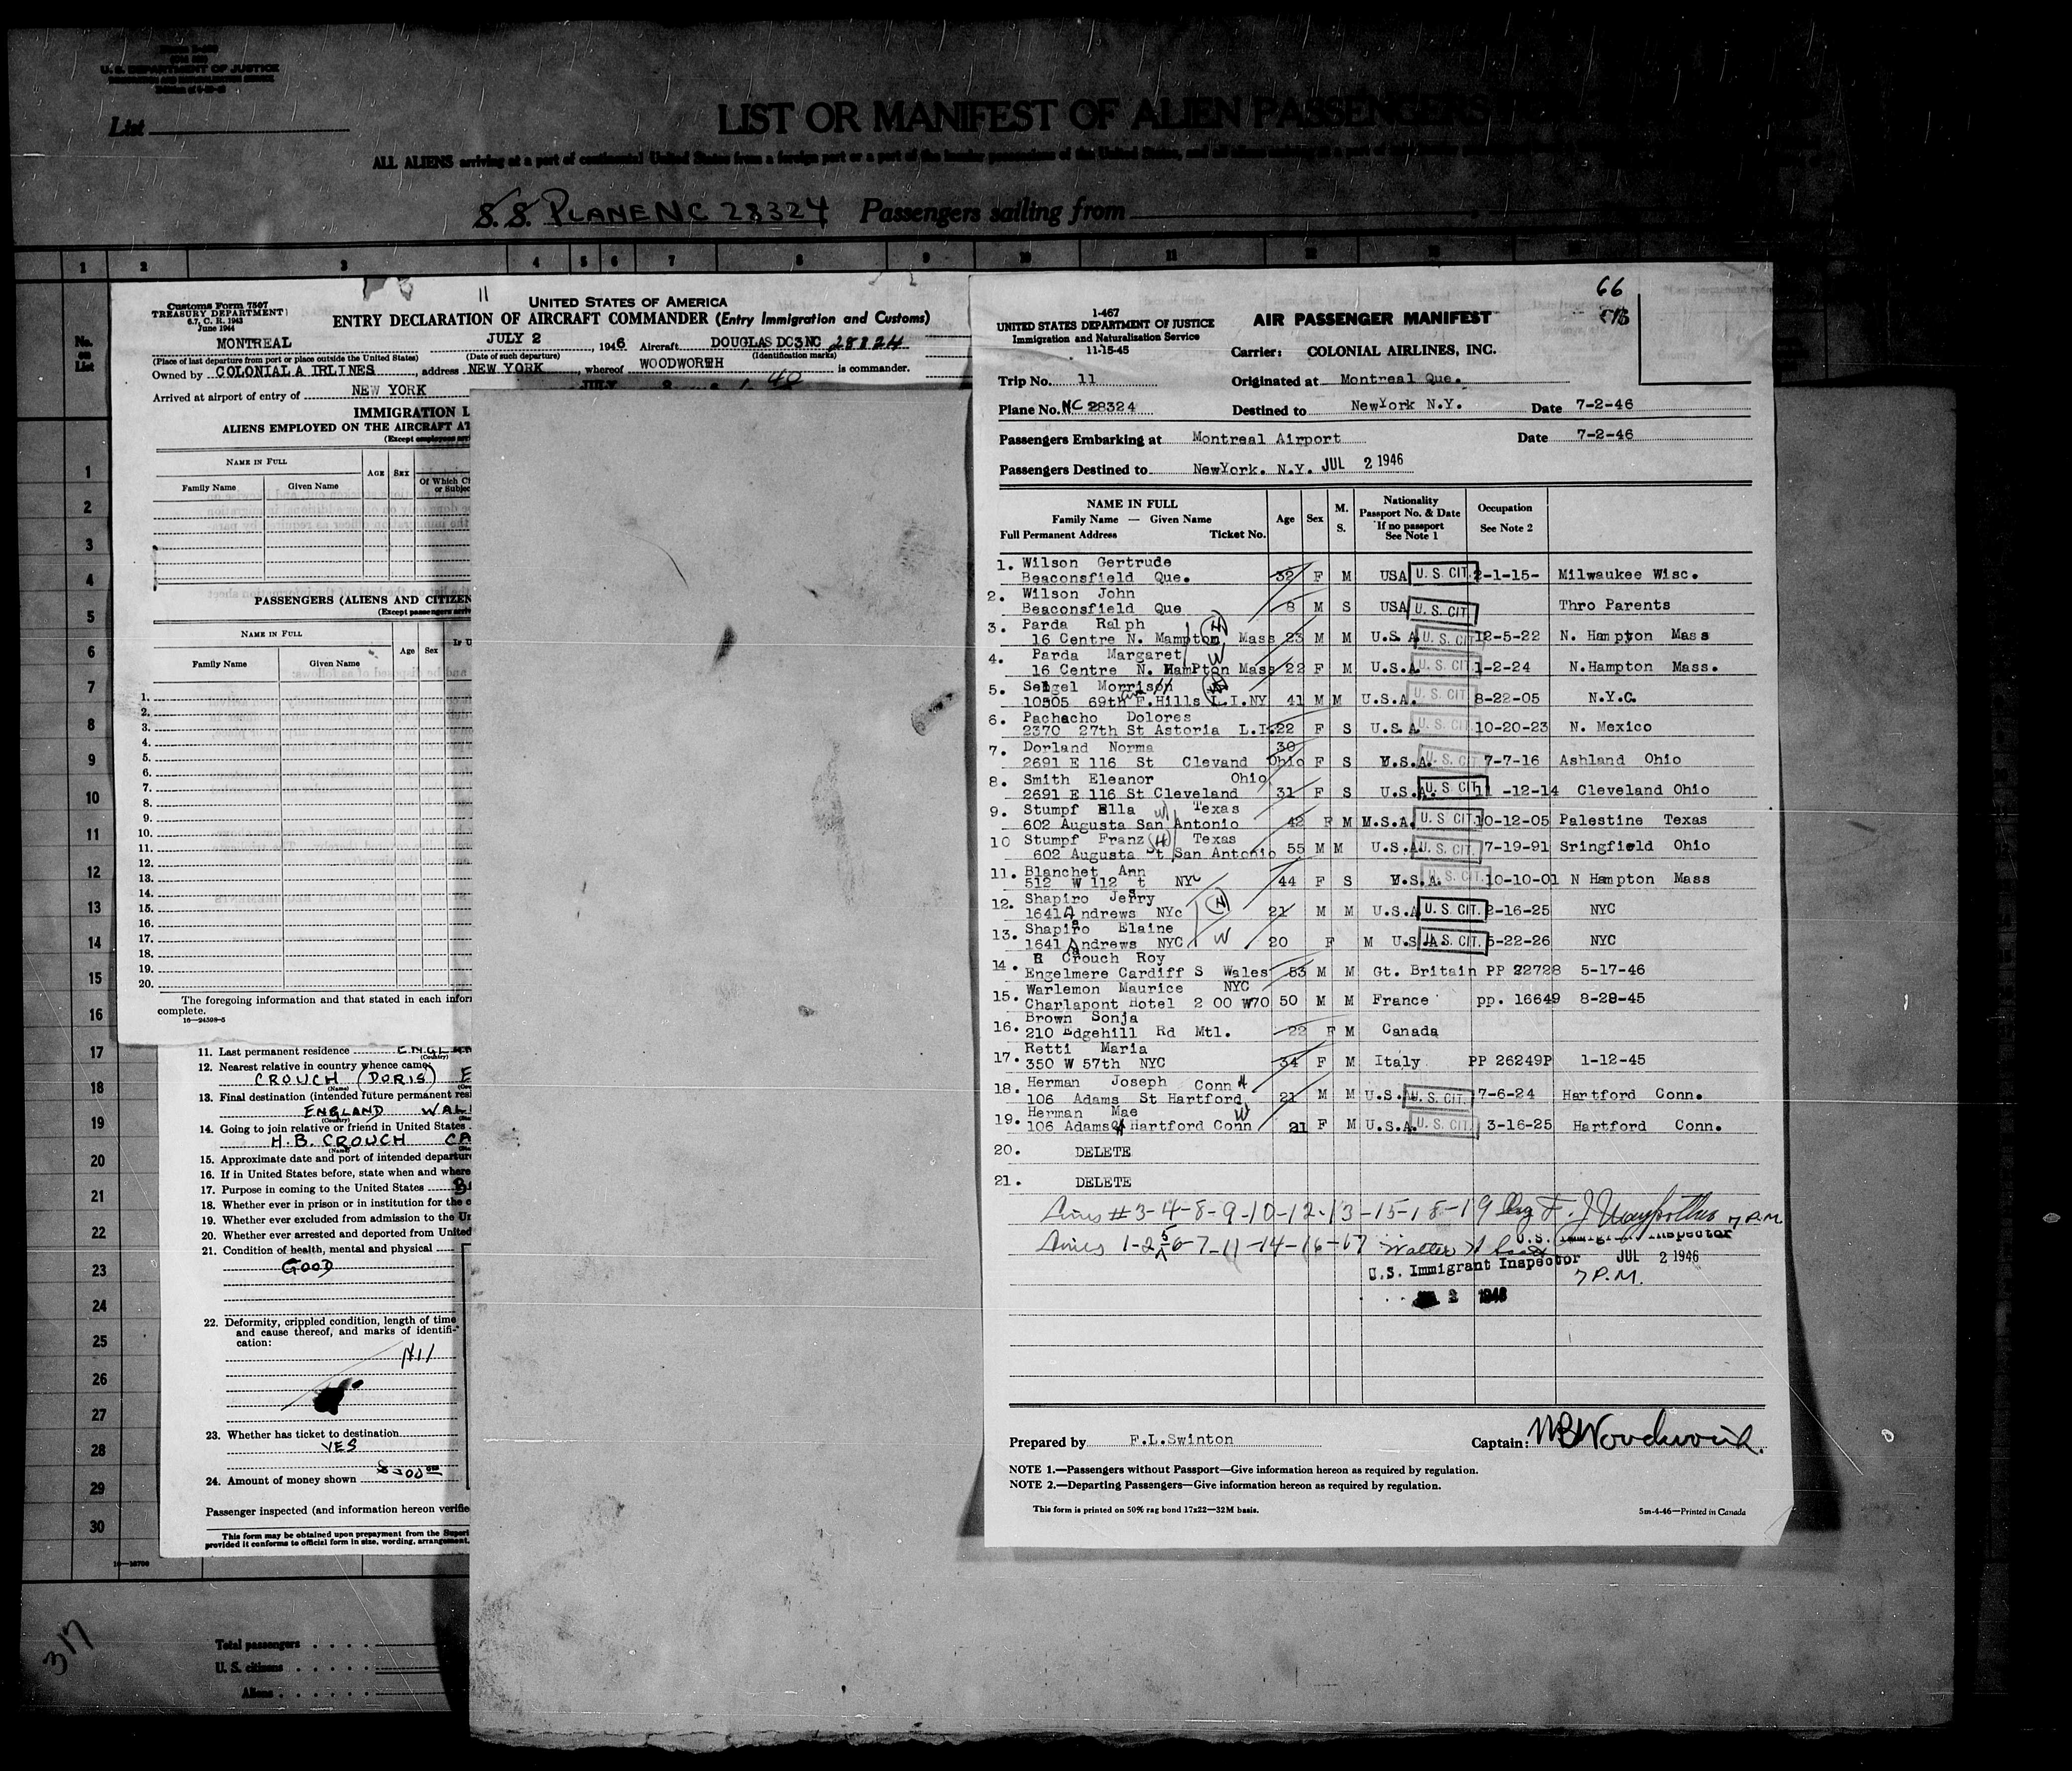 U. S. DEPARTMENT OF JUSTICE
List
LIST OR MANIFEST OF ALIEN PASSENGERS
ALL ALIENS arriving at a port of continental United States from a foreign port or a port of the insular possessions of the United States, and all aliens
S.S. PLANE NC 28324 Passengers sailing from
1 2 3 4 5 6 7 8 9 10 11 12 13
No. on List
1
2
3
4
5
6
7
8
9
10
11
12
13
14
15
16
17
18
19
20
21
22
23
24
25
26
27
28
29
30
Total passengers
U. S. citizens
Aliens
317
11
Customs Form 7507
TREASURY DEPARTMENT
6.7, C. R. 1943
June 1944
UNITED STATES OF AMERICA
ENTRY DECLARATION OF AIRCRAFT COMMANDER (Entry Immigration and Customs)
MONTREAL JULY 2, 1946 Aircraft DOUGLAS DC3 NC 28324
(Place of last departure from port or place outside the United States) (Date of such departure) (Identification marks)
Owned by COLONIAL A IRLINES, address NEW YORK, whereof WOODWORTH is commander.
Arrived at airport of entry of NEW YORK JULY
IMMIGRATION
ALIENS EMPLOYED ON THE AIRCRAFT
NAME IN FULL AGE SEX
Family Name Given Name
PASSENGERS (ALIENS AND CITIZEN
NAME IN FULL
Family Name Given Name Age Sex
1.
2.
3.
4.
5.
6.
7.
8.
9.
10.
11.
12.
13.
14.
15.
16.
17.
18.
19.
20.
The foregoing information and that stated in each
complete.
16—24598-5
11. Last permanent residence
(Country)
12. Nearest relative in country whence came:
CROUCH (DORIS)
(Name)
13. Final destination (intended future permanent
ENGLAND
(Country)
14. Going to join relative or friend in United States
H.B. CROUCH
(Name)
15. Approximate date and port of intended
16. If in United States before, state when and where
17. Purpose in coming to the United States
18. Whether ever in prison or in institution for the
19. Whether ever excluded from admission to the
20. Whether ever arrested and deported from United
21. Condition of health, mental and physical
GOOD
22. Deformity, crippled condition, length of time
and cause thereof, and marks of identifi-
cation:
Nil
23. Whether has ticket to destination
YES
24. Amount of money shown
Passenger inspected (and information hereon
This form may be obtained upon prepayment from the
provided it conforms to official form in size, wording, arrangement,
66
1-467
UNITED STATES DEPARTMENT OF JUSTICE
Immigration and Naturalization Service
11-15-45
AIR PASSENGER MANIFEST
Carrier: COLONIAL AIRLINES, INC.
Trip No. 11 Originated at Montreal Que.
Plane No. NC 28324 Destined to NewYork N.Y. Date 7-2-46
Passengers Embarking at Montreal Airport Date 7-2-46
Passengers Destined to NewYork. N.Y. JUL 2 1946
NAME IN FULL
Family Name — Given Name
Full Permanent Address Ticket No.
Age Sex M. S.
Nationality
Passport No. & Date
If no passport
See Note 1
Occupation
See Note 2
1. Wilson Gertrude
Beaconsfield Que. 32 F M USA U. S. CIT. 2-1-15- Milwaukee Wisc.
2. Wilson John
Beaconsfield Que 8 M S USA U. S. CIT. Thro Parents
3. Parda Ralph H
16 Centre N. Mampton Mass 23 M M U.S.A U. S. CIT. 12-5-22 N. Hampton Mass
4. Parda Margaret W
16 Centre N. HamPton Mass 22 F M U.S.A U. S. CIT. 1-2-24 N.Hampton Mass.
5. Seigel Morrison
10505 69th F.Hills L.I.NY 41 M M U.S.A. U. S. CIT. 8-22-05 N.Y.C.
6. Pachacho Dolores
2370 27th St Astoria L.I. 22 F S U.S.A U. S. CIT. 10-20-23 N. Mexico
7. Dorland Norma 30
2691 E 116 St Clevand Ohio F S U.S.A. U. S. CIT. 7-7-16 Ashland Ohio
8. Smith Eleanor Ohio
2691 E 116 St Cleveland 31 F S U.S.A. U. S. CIT. 11 -12-14 Cleveland Ohio
9. Stumpf Ella W Texas
602 Augusta San Antonio 42 F M M.S.A. U. S. CIT. 10-12-05 Palestine Texas
10 Stumpf Franz H Texas
602 Augusta St San Antonio 55 M M U.S.A U. S. CIT. 7-19-91 Sringfield Ohio
11. Blanchet Ann
512 W 112 t NYC 44 F S U.S.A. U. S. CIT. 10-10-01 N Hampton Mass
12. Shapiro Jerry H
1641 Andrews NYc 21 M M U.S.A U. S. CIT. 2-16-25 NYC
13. Shapiro Elaine
1641 Andrews NYC W 20 F M U.S.A. U. S. CIT. 5-22-26 NYC
14. R Crouch Roy
Engelmere Cardiff S Wales 53 M M Gt. Britain PP 22728 5-17-46
15. Warlemon Maurice NYC
Charlapont Hotel 2 00 W70 50 M M France pp. 16649 8-28-45
16. Brown Sonja
210 Edgehill Rd Mtl. 22 F M Canada
17. Retti Maria
350 W 57th NYC 34 F M Italy PP 26249P 1-12-45
18. Herman Joseph Conn H
106 Adams St Hartford 21 M M U.S. U. S. CIT. 7-6-24 Hartford Conn.
19. Herman Mae W
106 Adams St Hartford Conn 21 F M U.S.A. U. S. CIT. 3-16-25 Hartford Conn.
20. DELETE
21. DELETE
Lines # 3-4-8-9-10-12-13-15-18-19 7 P.M
U.S. Immigrant Inspector
Lines 1-2-5-6-7-11-14-16-17 Walter
U.S. Immigrant Inspector JUL 2 1946
7 P.M.
2 1946
Prepared by F.L.Swinton Captain: Woodworth
NOTE 1.—Passengers without Passport—Give information hereon as required by regulation.
NOTE 2.—Departing Passengers—Give information hereon as required by regulation.
This form is printed on 50% rag bond 17x22—32M basis. 5m-4-46—Printed in Canada